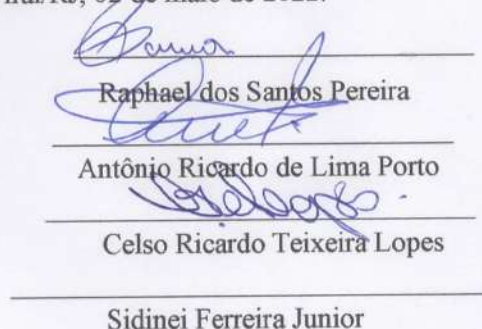 de maio de 2022.
Raphael dos Santos Pereira
Antônio Ricardo de Lima Porto
Celso Ricardo Teixeira Lopes
Sidinei Ferreira Junior